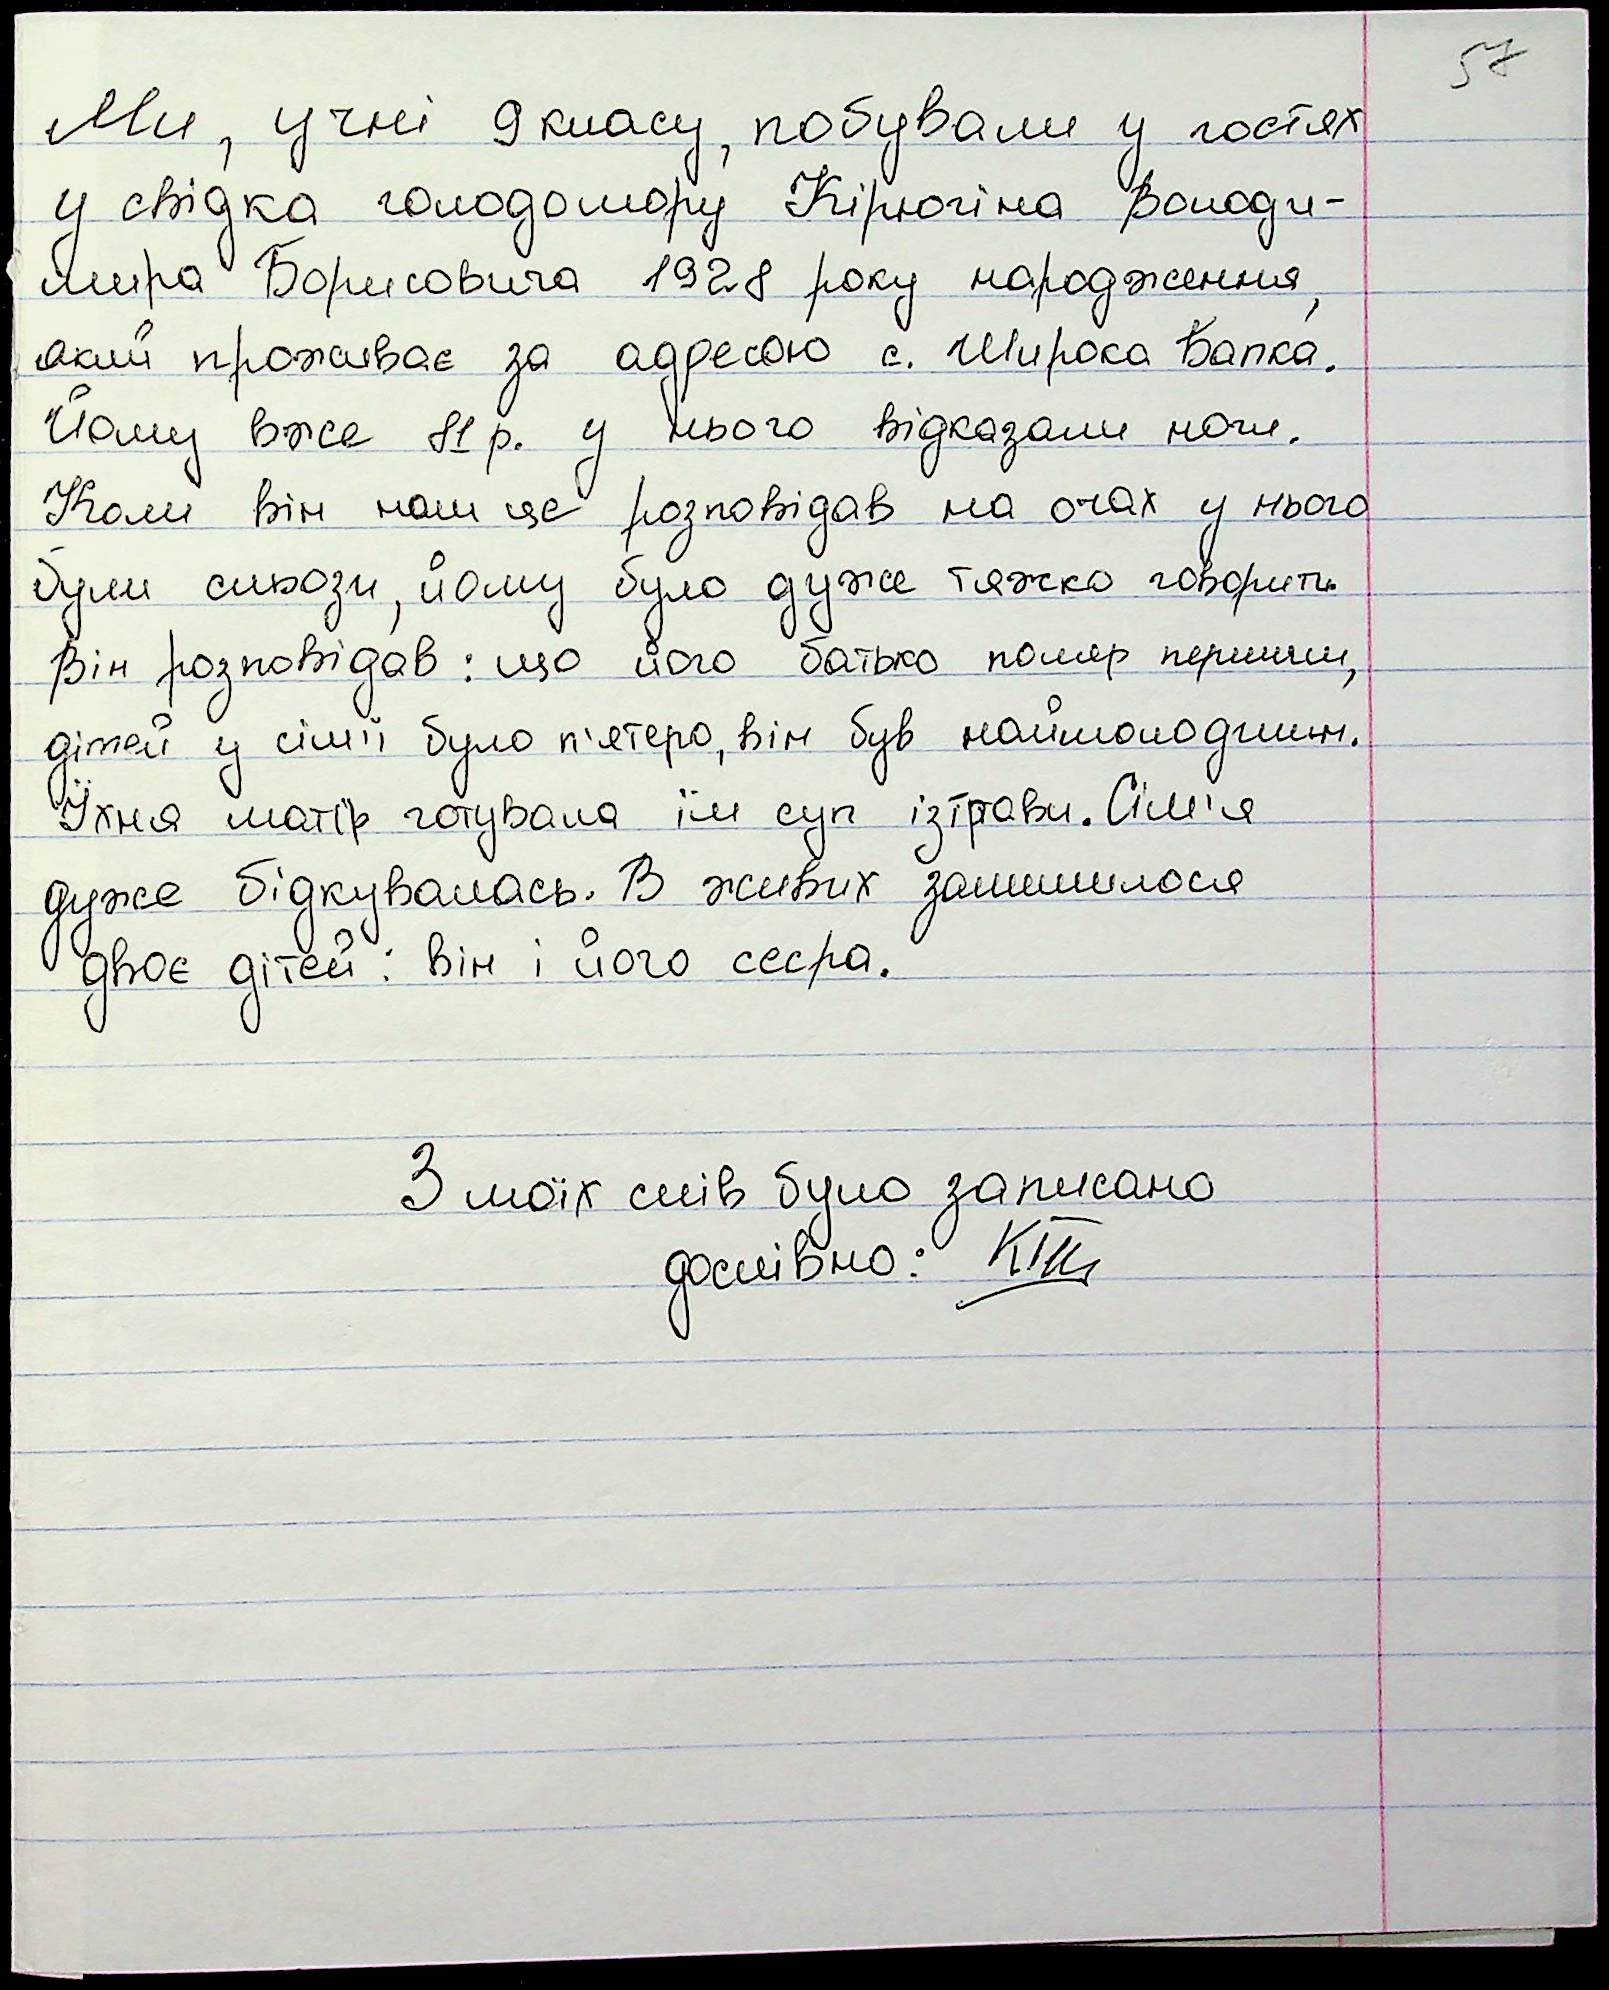 57
Ми, учні 9 класу, побували у гостях
у свідка голодомору Кірюгіна Володи-
мира Борисовича 1928 року народження,
який проживає за адресою с. Широка Балка.
Йому вже 81 р. у нього відказали ноги.
Коли він нам це розповідав на очах у нього
були сльози, йому було дуже тяжко говорить.
Він розповідав: що його батько помер першим,
дітей у сім'ї було п'ятеро, він був наймолодшим.
Їхня матір готувала їм суп із трави. Сім'я
дуже бідкувалась. В живих залишилося
двоє дітей: він і його сестра.
З моїх слів було записано
дослівно: